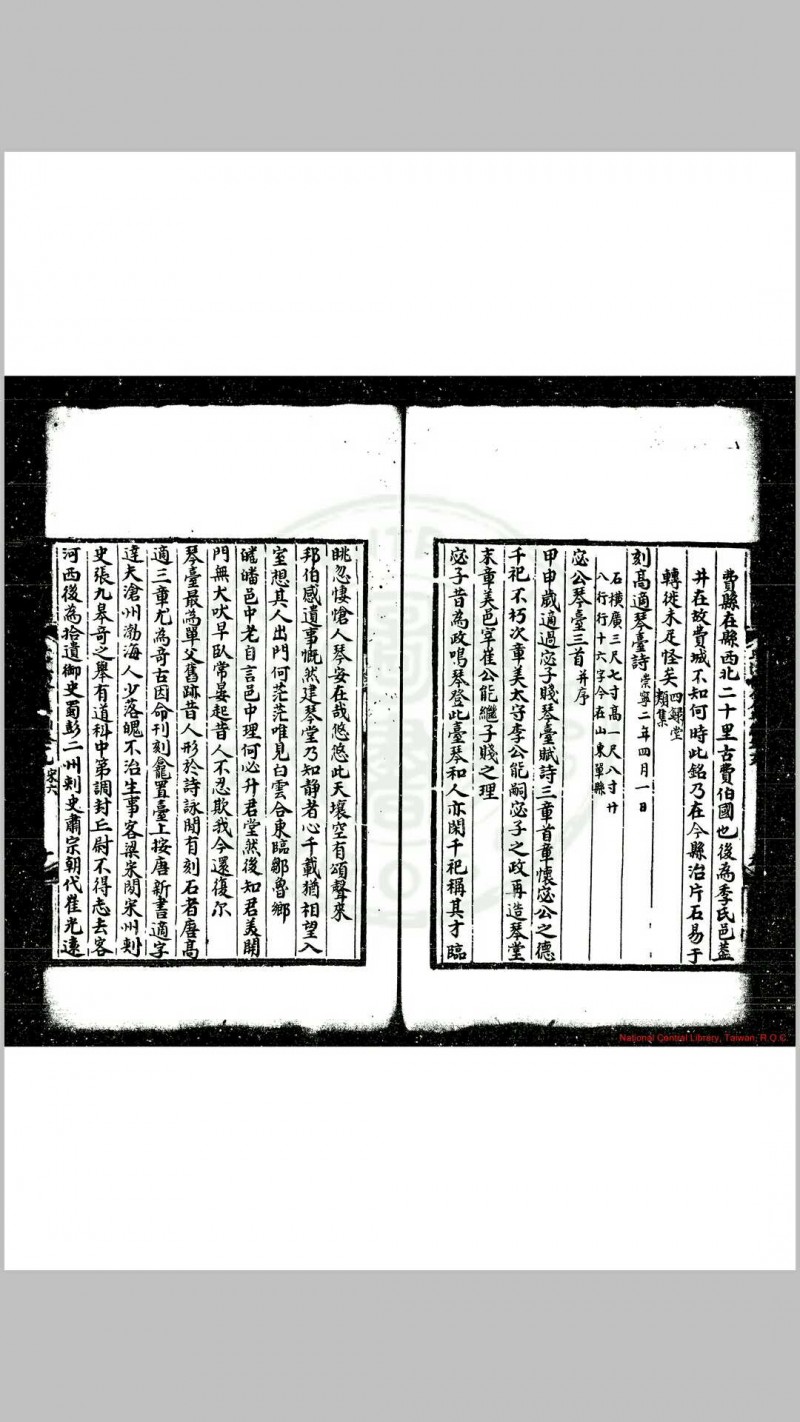 費縣在縣西北二十里古費伯國也後為季氏邑蓋
井在故費城不知何時此銘乃在今縣治片石易于
轉徙未足怪矣四録堂類集
刻高適琴臺詩崇寧二年四月一日
石橫廣三尺七寸高一尺八寸廿
八行行十六字今在山東單縣
宓公琴臺三首并序
甲申歲適過宓子賤琴臺賦詩三章首章懷宓公之德
千祀不朽次章美太守李公能嗣宓子之政再造琴堂
末章美邑宰崔公能繼子賤之理
宓子昔為政鳴琴登此臺琴和人亦閑千祀稱其才臨
眺忽悽愴人琴安在哉悠悠此天壤空有頌聲來
邦伯感遺事慨然建琴堂乃知静者心千載猶相望入
室想其人出門何茫茫唯見白雲合東臨鄒魯鄉
皤皤邑中老自言邑中理何必升君堂然後知君美開
門無犬吠早臥常晏起昔人不忍欺我今還復尔
琴臺最為單父舊跡昔人形於詩詠間有刻石者唐高
適三章尤為奇古因命刊刻龕置臺上按唐新書適字
達夫滄州渤海人少落魄不治生事客梁宋間宋州刺
史張九皋奇之舉有道科中第調封丘尉不得志去客
河西後為拾遺御史蜀彭二州刺史肅宗朝代崔光遠
National Central Library, Taiwan, R.O.C.